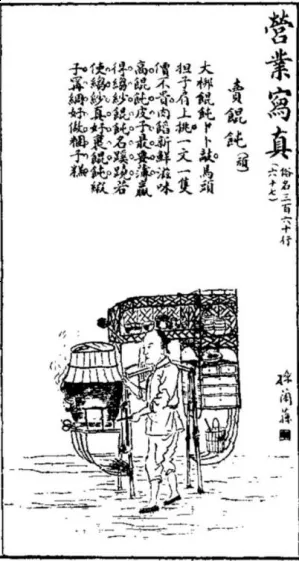 營業寫真
俗名三百六十行
(六十七)
賣餛飩
大梆餛飩卜卜敲馬頭
担子肩上挑一文一隻
價不貴肉餡新鮮滋味
高餛飩皮子最要薄贏
得縐紗餛飩名蹊蹺若
使縐紗真好裹餛飩緞
子寧綢好做糰子糕
孫蘭蓀